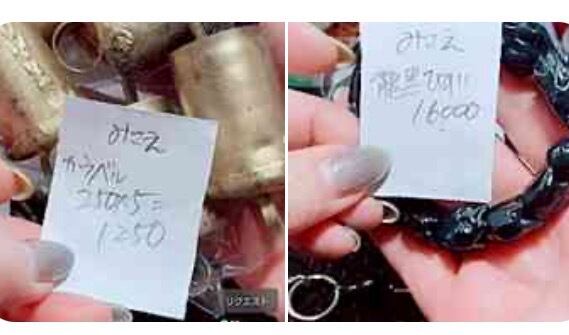 みさえ
カウベル
250×5=
1250
リクエスト
みさえ
16000